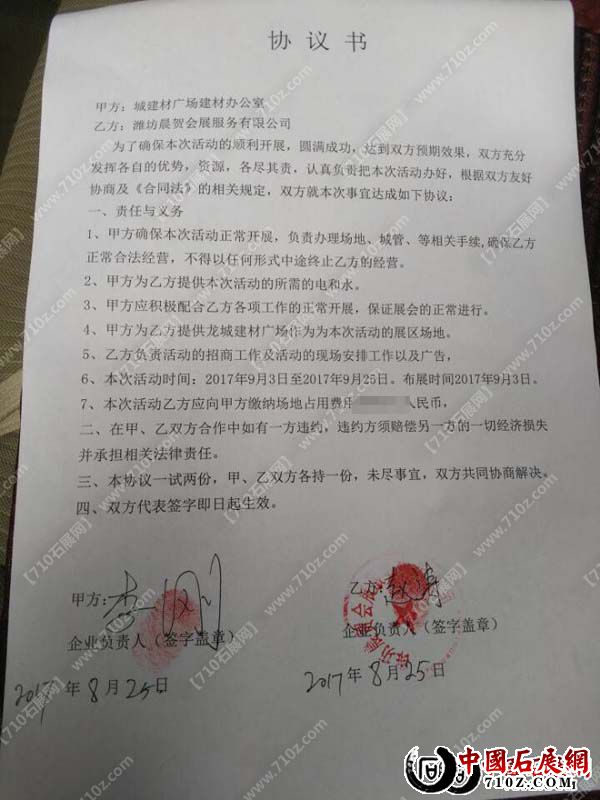 协议书
甲方：城建材广场建材办公室
乙方：潍坊晨贺会展服务有限公司
为了确保本次活动的顺利开展，圆满成功，达到双方预期效果，双方充分
发挥各自的优势，资源，各尽其责，认真负责把本次活动办好，根据双方友好
协商及《合同法》的相关规定，双方就本次事宜达成如下协议：
一、责任与义务
1、甲方确保本次活动正常开展，负责办理场地、城管、等相关手续，确保乙方
正常合法经营，不得以任何形式中途终止乙方的经营。
2、甲方为乙方提供本次活动的所需的电和水。
3、甲方应积极配合乙方各项工作的正常开展，保证展会的正常进行。
4、甲方为乙方提供龙城建材广场作为为本次活动的展区场地。
5、乙方负责活动的招商工作及活动的现场安排工作以及广告，
6、本次活动时间：2017年9月3日至2017年9月25日。布展时间2017年9月3日。
7、本次活动乙方应向甲方缴纳场地占用费用 人民币，
二、在甲、乙双方合作中如有一方违约，违约方须赔偿另一方的一切经济损失
并承担相关法律责任。
三、本协议一试两份，甲、乙双方各持一份，未尽事宜，双方共同协商解决。
四、双方代表签字即日起生效。
甲方：李 刚 乙方：赵涛
企业负责人（签字盖章） 企业负责人（签字盖章）
2017年8月25日 2017年8月25日
【710石展网】www.710z.com
中國石展網
www.710z.com